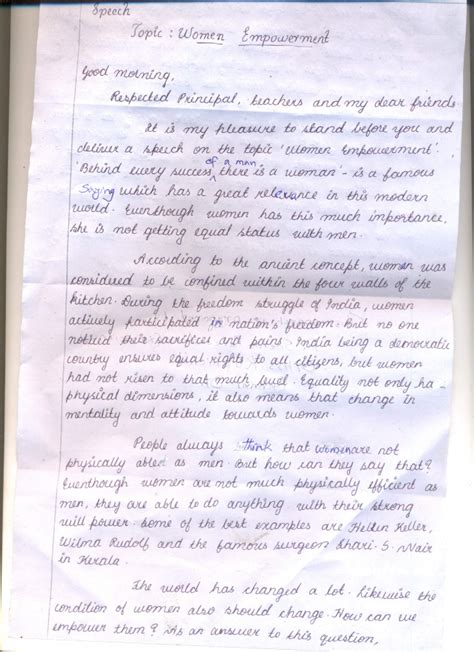 Speech
Topic : Women Empowerment
Good morning,
Respected Principal, teachers and my dear friends
It is my pleasure to stand before you and
deliver a speech on the topic 'Women Empowerment'.
'Behind every success of a man, there is a woman' - is a famous
Saying which has a great relevance in this modern
world. Eventhough women has this much importance,
she is not getting equal status with men.
According to the ancient concept, woman was
considered to be confined within the four walls of the
kitchen. During the freedom struggle of India, women
actively participated in nation's freedom. But no one
noticed their sacrifices and pains. India being a democratic
country ensures equal rights to all citizens, but women
had not risen to that much level. Equality not only ha-
physical dimensions, it also means that change in
mentality and attitude towards women.
People always think that women are not
physically abled as men. But how can they say that?
Eventhough women are not much physically efficient as
men, they are able to do anything with their strong
will power. Some of the best examples are Hellen Keller,
Wilma Rudolf and the famous surgeon Shari. S. Nair
in Kerala.
The world has changed a lot. Likewise the
condition of women also should change. How can we
empower them? As an answer to this question,